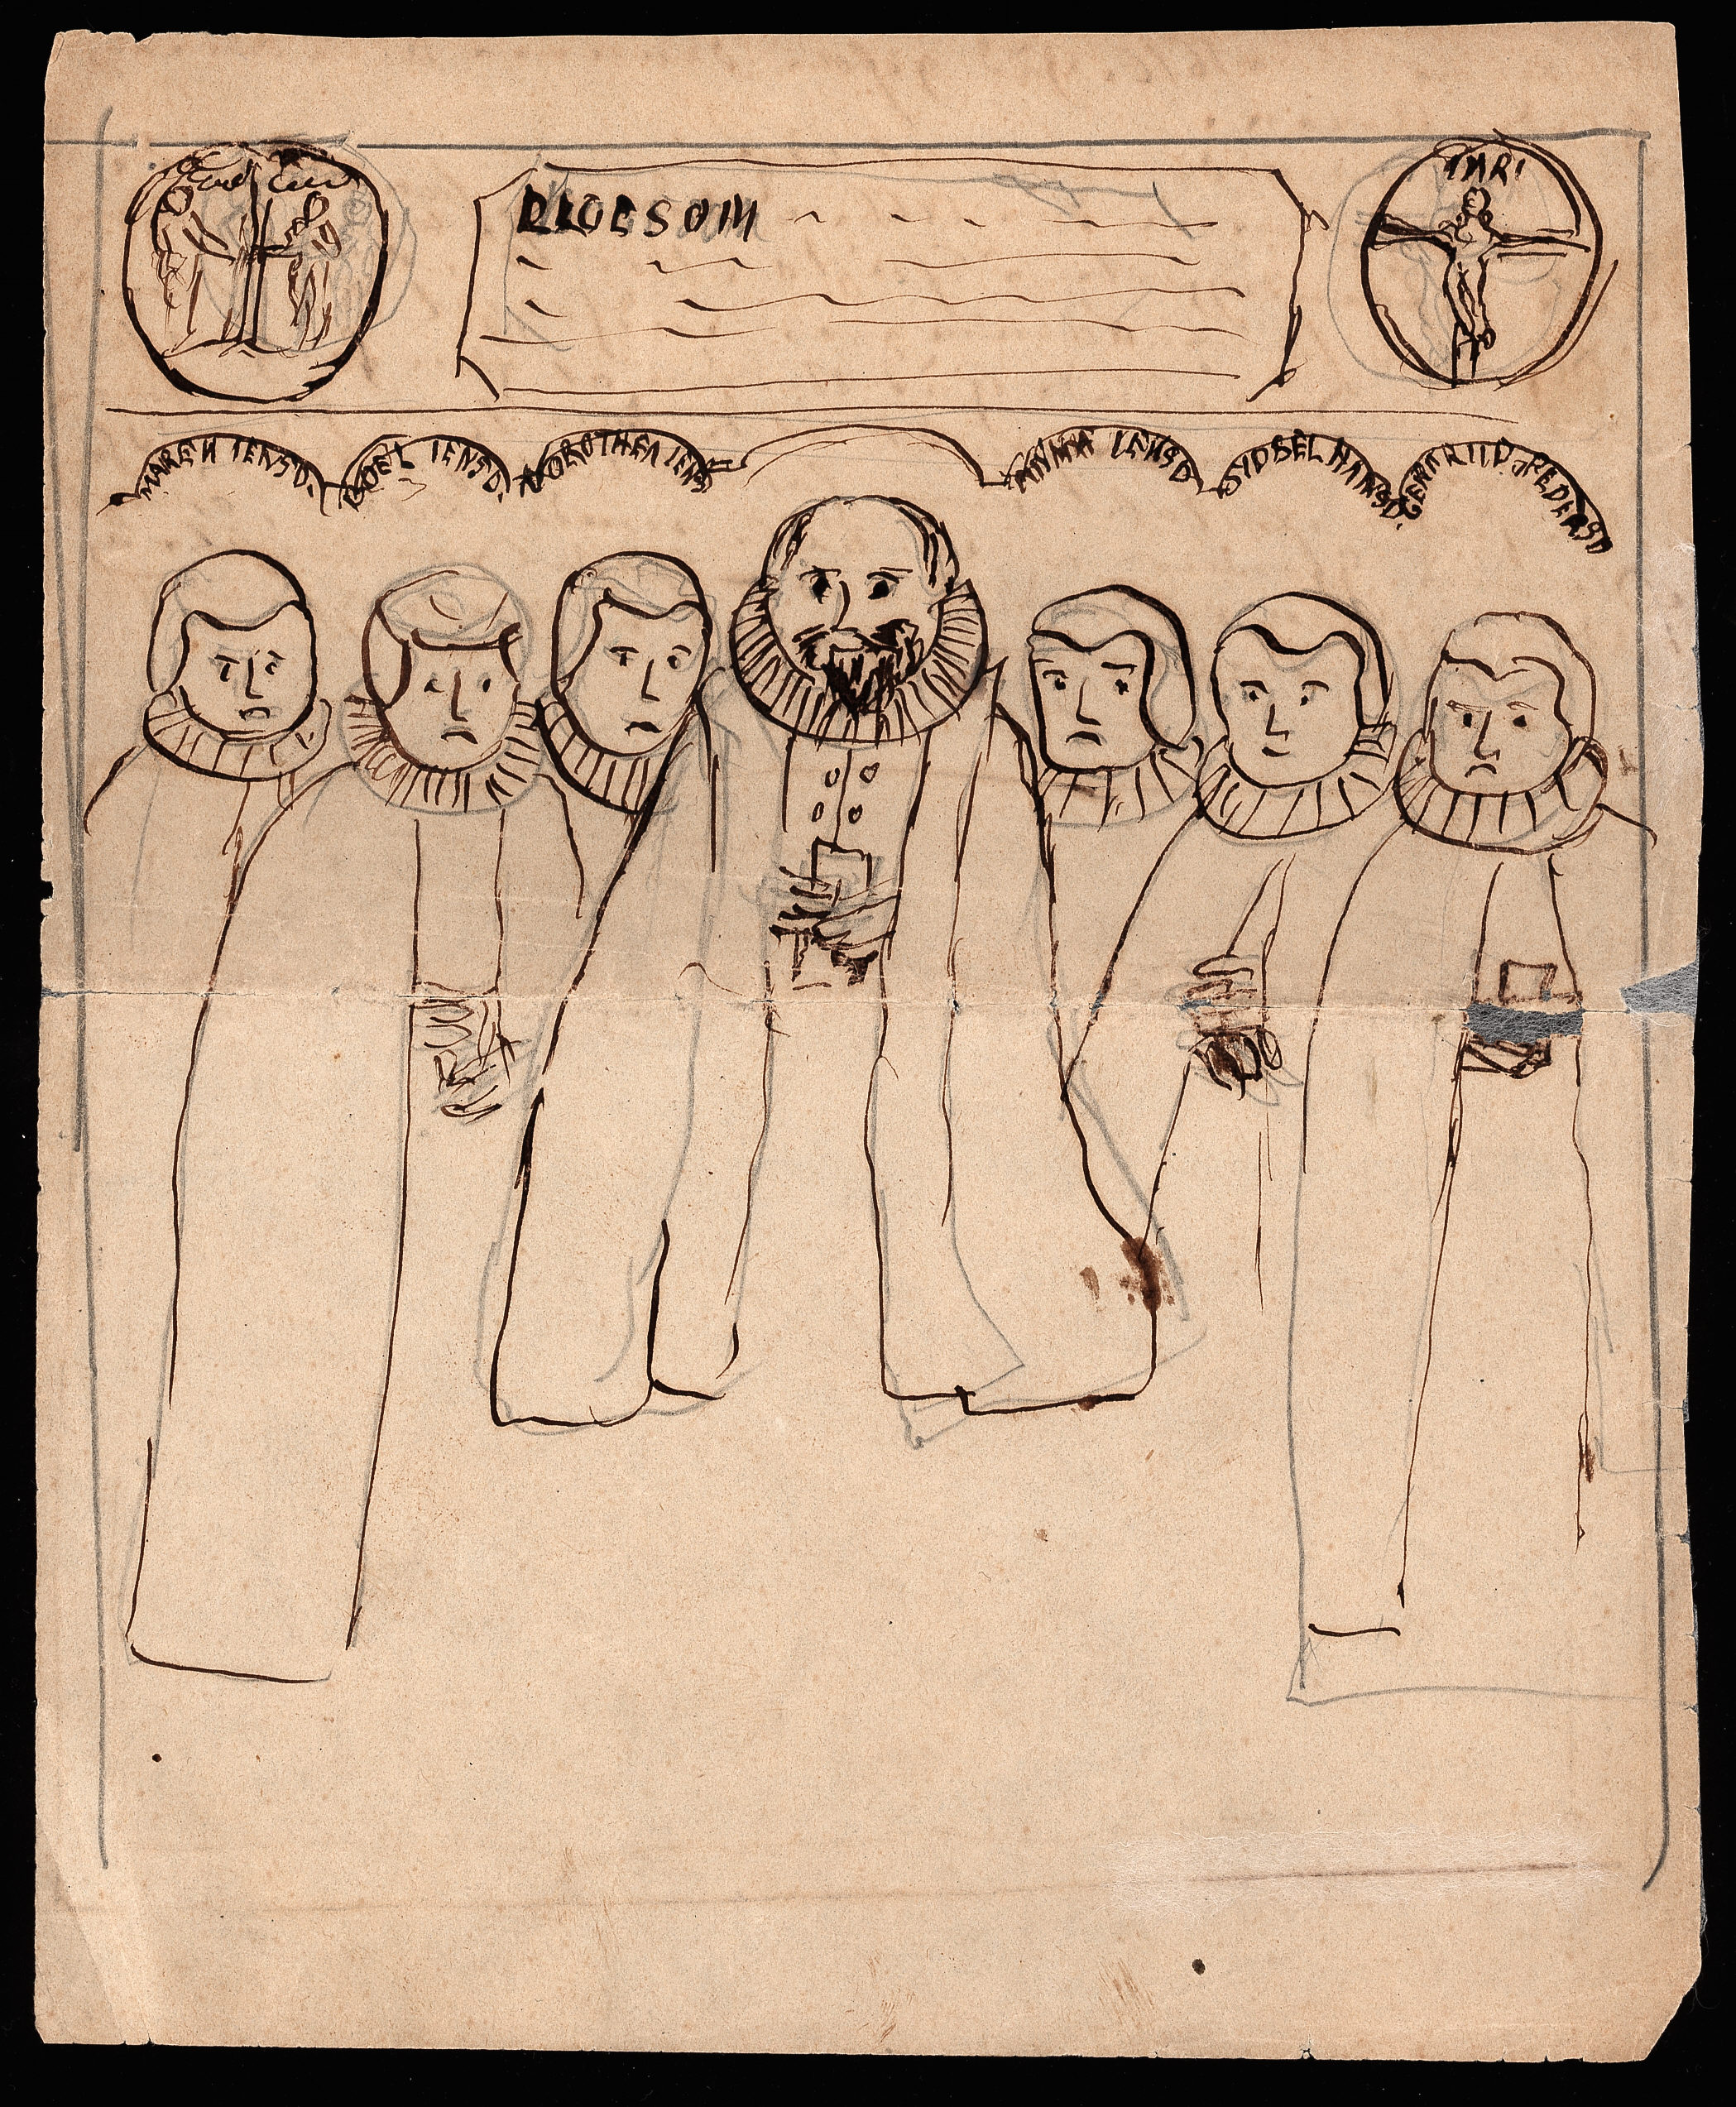 INRI
MAREN IENSD.
BOEL IENSD.
DOROTHEA IENS
ANNA IENSD
SIDSEL HANSD.
PEDERSD